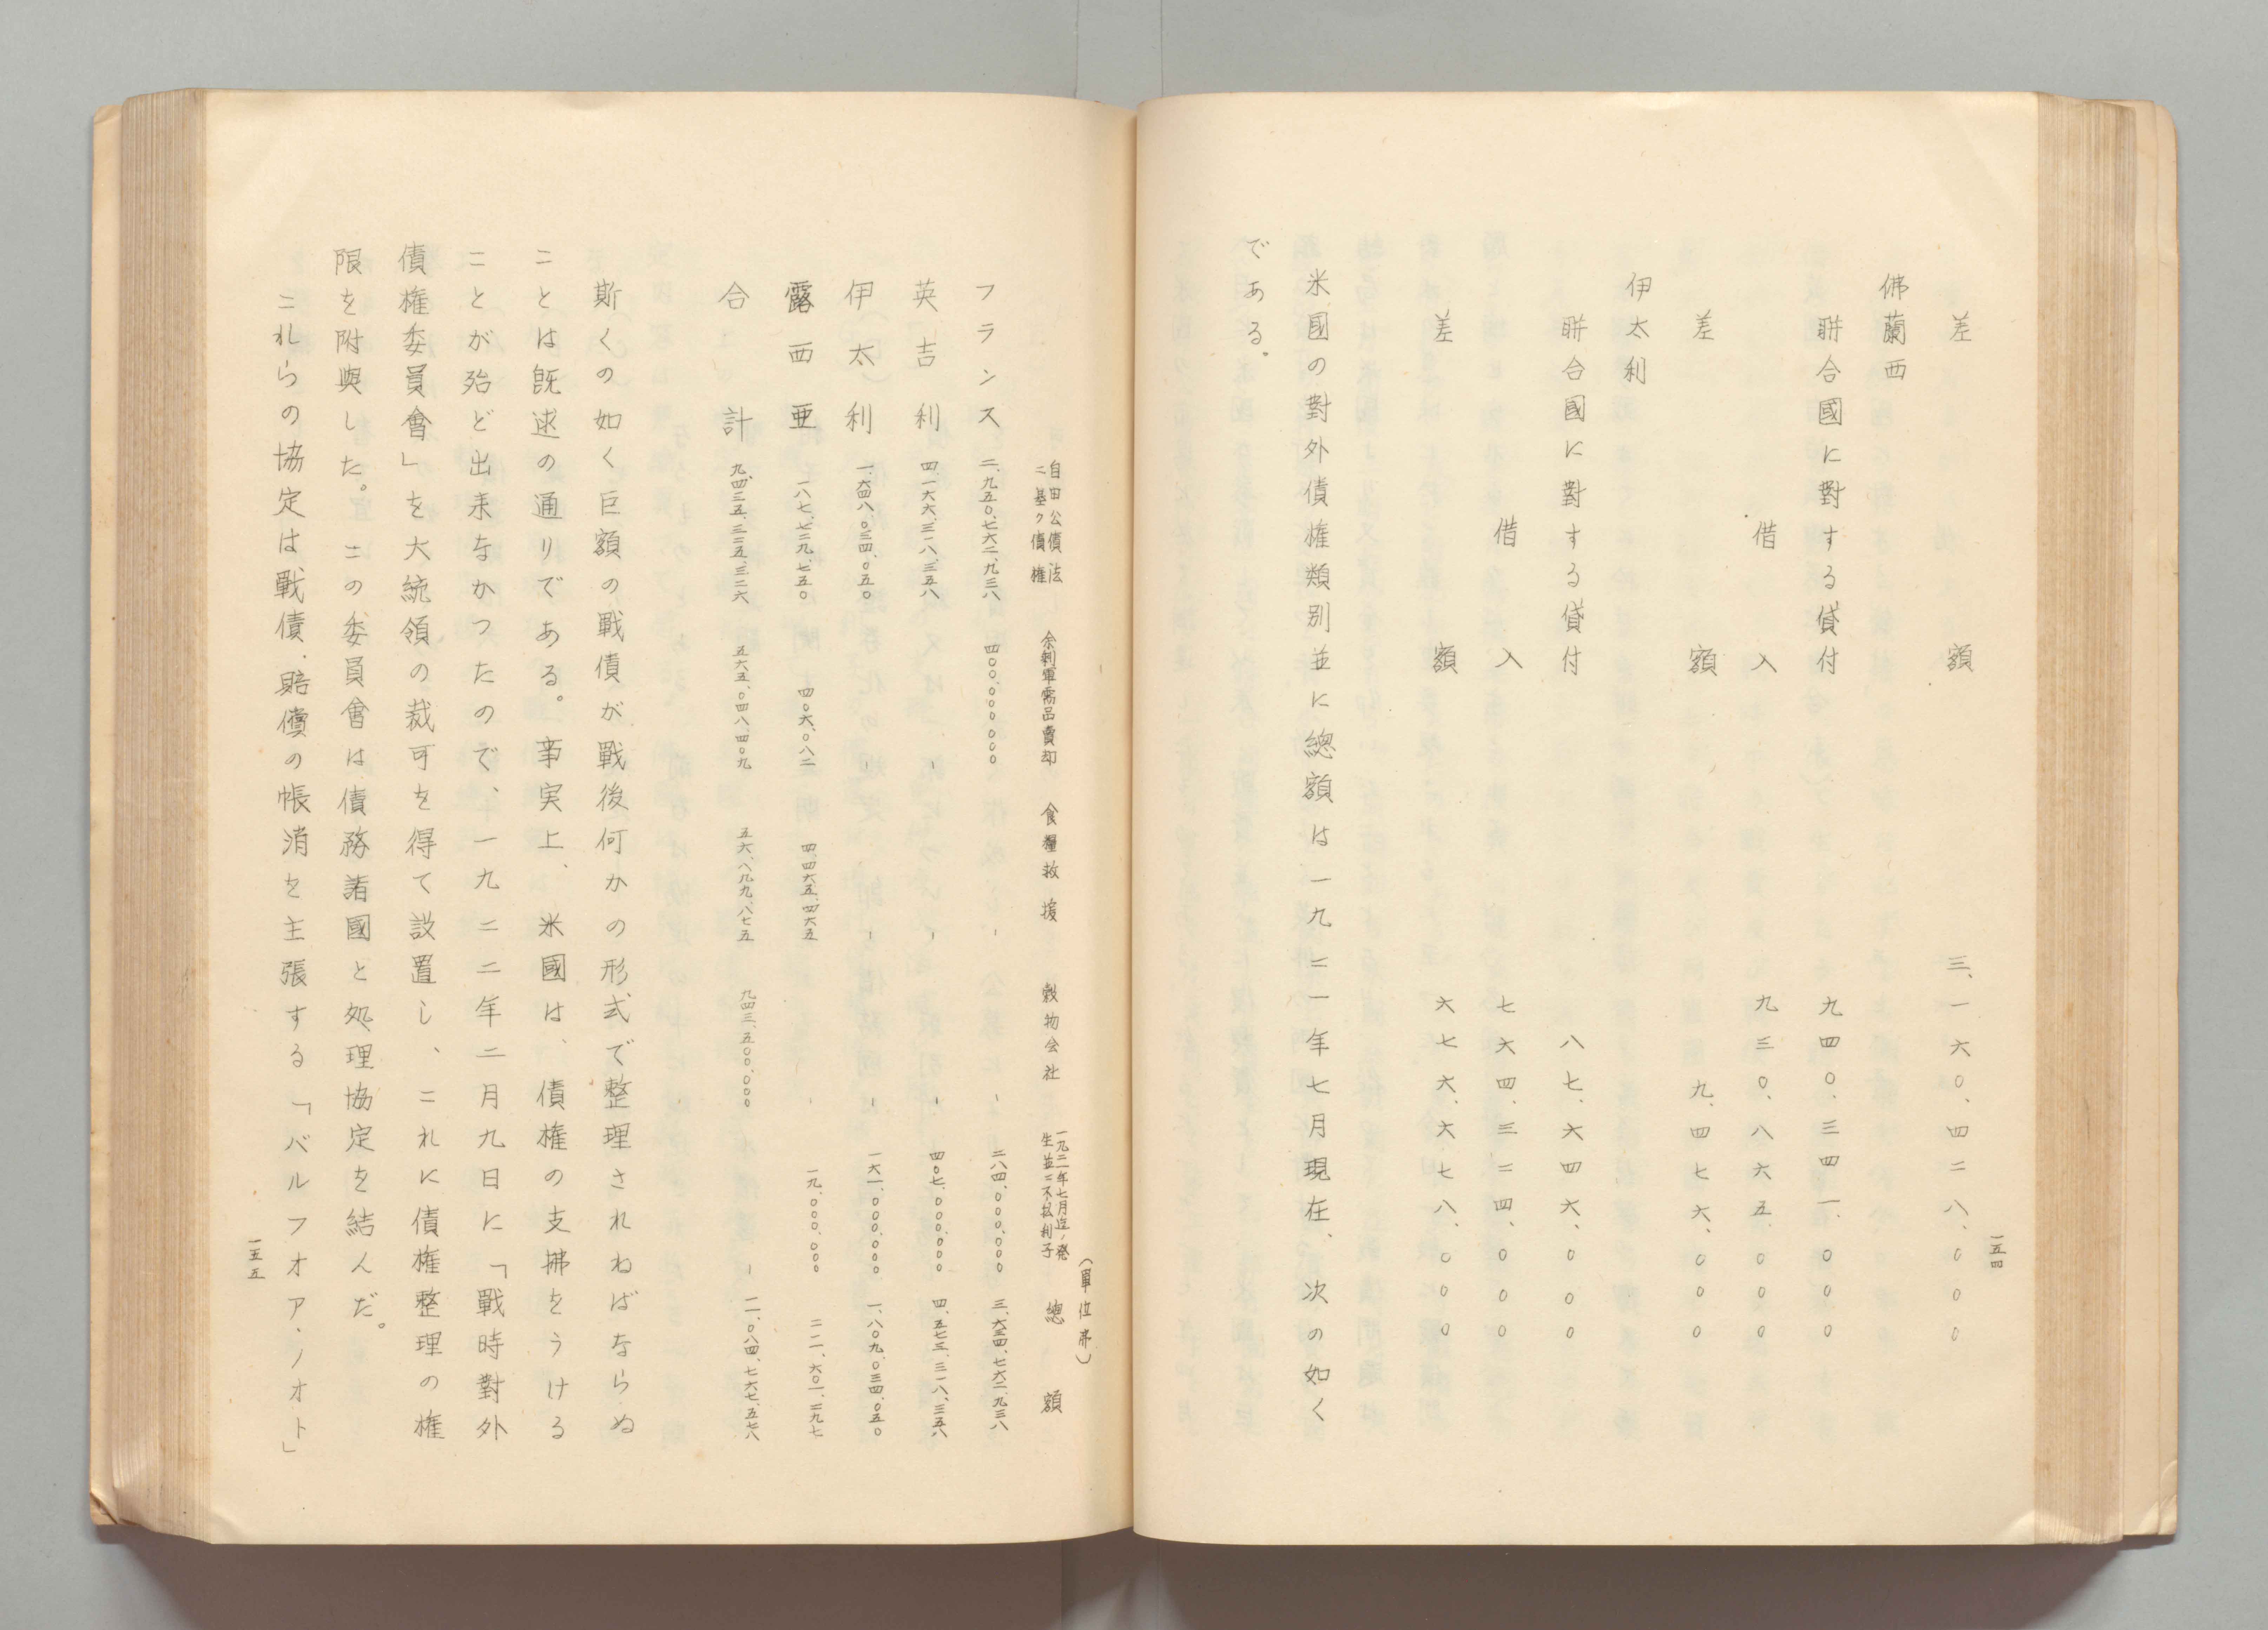 差額　三、一六〇、四二八、〇〇〇
佛蘭西
聯合國に對する貸付　九四〇、三四一、〇〇〇
借入　九三〇、八六五、〇〇〇
差額　九、四七六、〇〇〇
伊太利
聯合國に對する貸付　八七、六四六、〇〇〇
借入　七六四、三二四、〇〇〇
差額　六七六、六七八、〇〇〇
米國の對外債権類別並に總額は一九二一年七月現在、次の如く
である。
一五四
（單位弗）
自由公債法ニ基ク債権　余剰軍需品賣却　食糧救援　穀物会社　一九二一年七月迄ノ発生並ニ不拂利子　總額
フランス　二、九五〇、七六二、九三八　四〇〇、〇〇〇、〇〇〇　－　－　二八四、〇〇〇、〇〇〇　三、六三四、七六二、九三八
英吉利　四、一六六、三一八、三五八　－　－　－　四〇七、〇〇〇、〇〇〇　四、五七三、三一八、三五八
伊太利　一、六四八、〇三四、〇五〇　－　－　－　一六一、〇〇〇、〇〇〇　一、八〇九、〇三四、〇五〇
露西亜　一八七、七二九、七五〇　四〇六、〇八二　四、四六五、四六五　－　一九、〇〇〇、〇〇〇　二一一、六〇一、二九七
合計　九、四三五、三二五、三二六　五六五、〇四八、四〇九　五六、八九九、八七五　九四三、五〇〇、〇〇〇　－　一一、〇八四、七六七、五七八
斯くの如く巨額の戰債が戰後何かの形式で整理されねばならぬ
ことは既述の通りである。事実上、米國は、債権の支拂をうける
ことが殆ど出来なかつたので、一九二二年二月九日に「戰時對外
債権委員會」を大統領の裁可を得て設置し、これに債権整理の権
限を附與した。この委員會は債務諸國と処理協定を結んだ。
これらの協定は、戰債、賠償の帳消を主張する「バルフオア・ノオト」
一五五